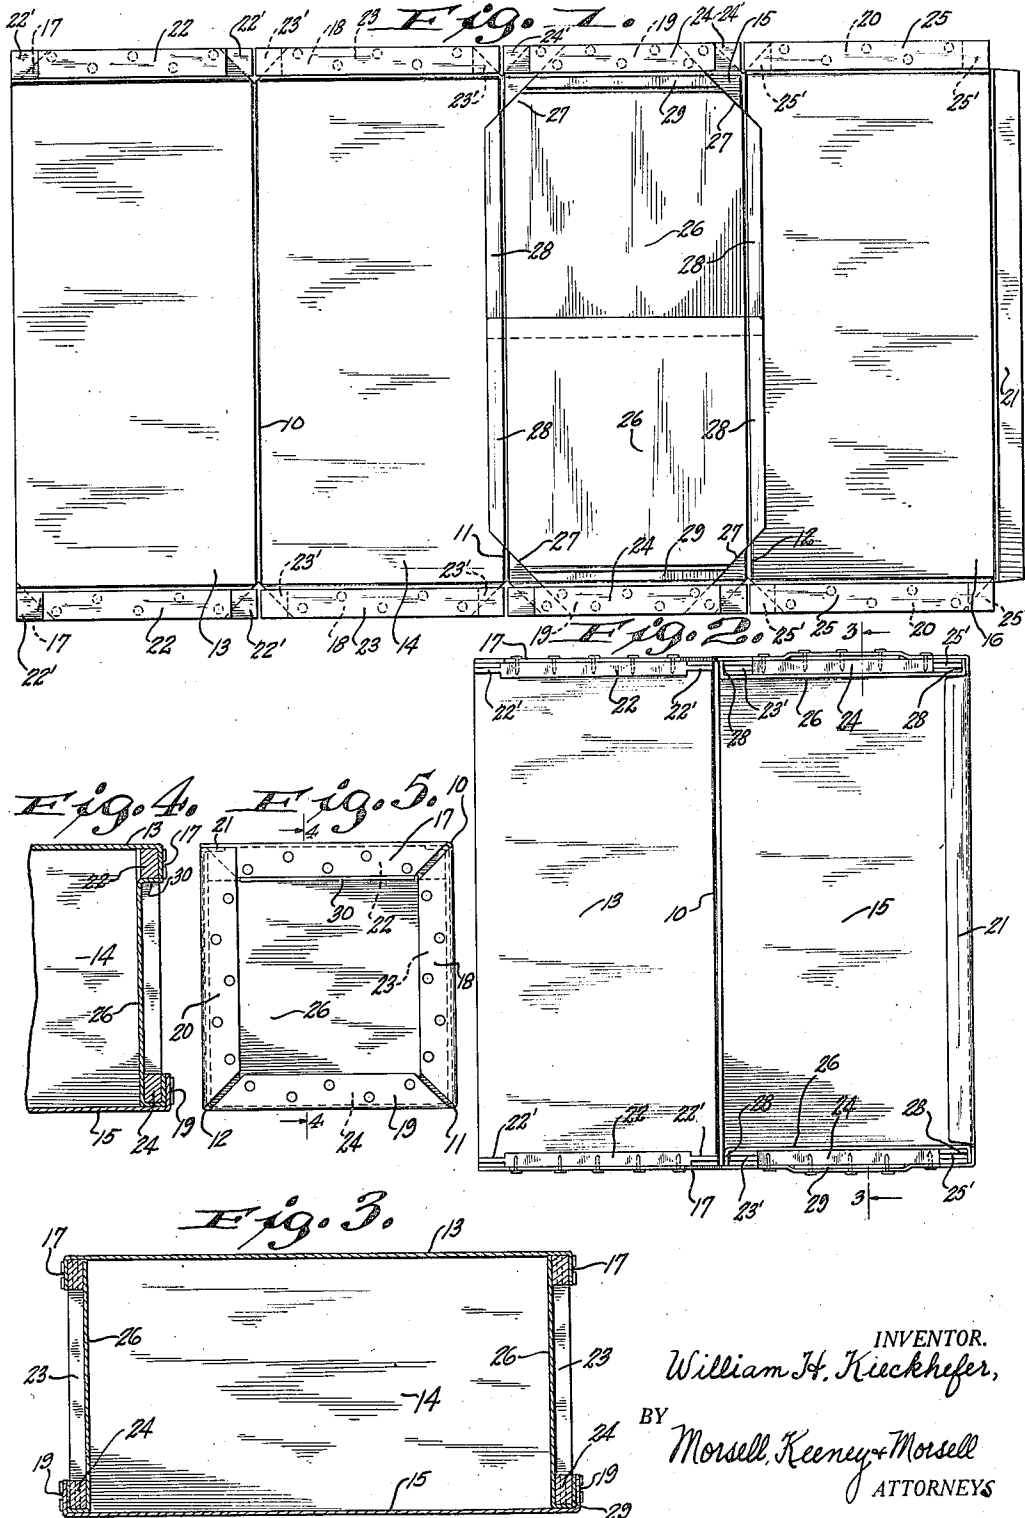 Fig. 1.
22' 17 22 22' 23' 18 23 24' 19 24 24' 15 20 25
23' 27 29 27 25' 25'
26
28 28
21
10 28 26 28
11 27 24 29 27 12
23' 14 23'
17 22 13 22' 18 23 19 25' 25 20 16 25
22'
Fig. 2.
3
17 22' 22 22' 28 23' 26 24 28 25'
13 10 15 21
26
22' 22 22' 28 24 28
17 23' 29 25'
3
Fig. 4.
13 17
22 30
14
26
15 24 19
Fig. 5.
10
21 4 17
30 22
23 18
20 26
12 4 24 19 11
Fig. 3.
17 13 17
26 26
23 23
14
24 24
19 15 19
29
INVENTOR.
William H. Kieckhefer,
BY
Morsell, Keeney & Morsell
ATTORNEYS